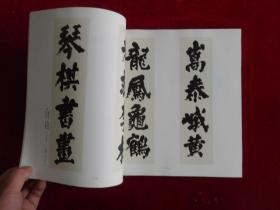 嵩泰峨黄
龍鳳龜鶴
琴棋書畫